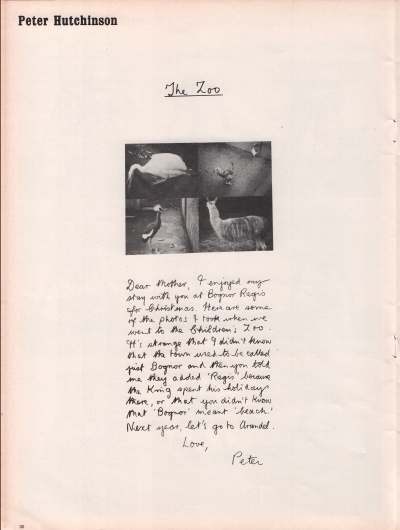 Peter Hutchinson
The Zoo
Dear Mother, I enjoyed my
stay with you at Bognor Regis
for Christmas. Here are some
of the photos I took when we
went to the Children's Zoo.
It's strange that I didn't know
that the town used to be called
just Bognor and then you told
me they added 'Regis' because
the King spent his holidays
there, or that you didn't know
that 'Bognor' meant 'beach'.
Next year, let's go to Arundel.
Love,
Peter